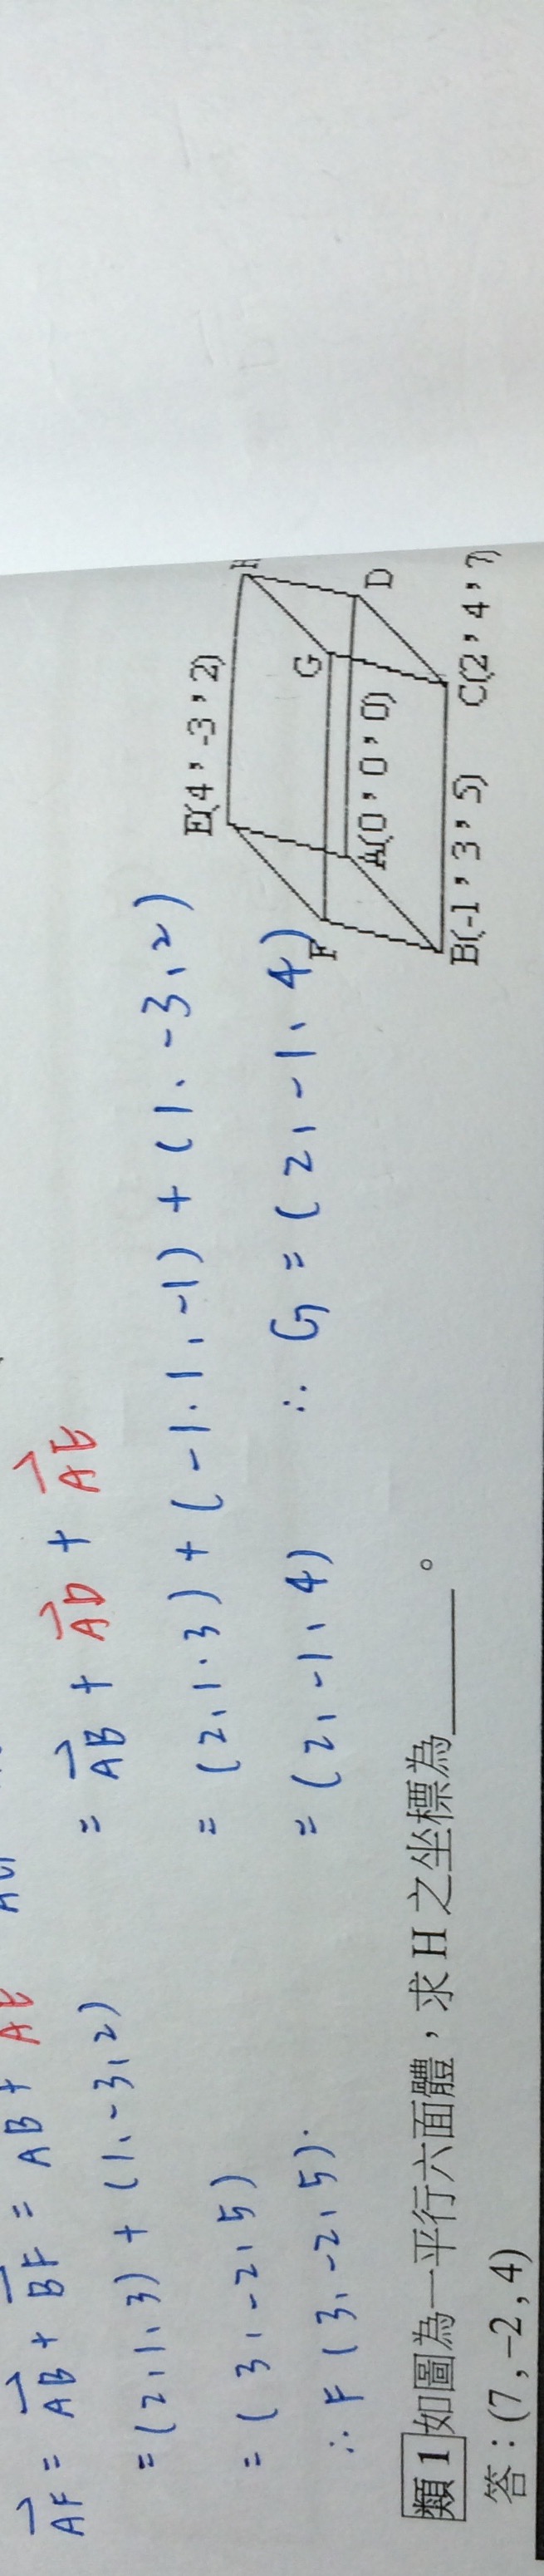 AF = AB + BF = AB + AE
= (2, 1, 3) + (1, -3, 2)
= (3, -2, 5)
∴ F (3, -2, 5).
= AB + AD + AE
= (2, 1, 3) + (-1, 1, -1) + (1, -3, 2)
= (2, -1, 4) ∴ G = (2, -1, 4)
類1 如圖為一平行六面體，求 H 之坐標為______。
答：(7, -2, 4)
E(4，-3，2)
H
G
F
A(0，0，0)
D
B(-1，3，5)
C(2，4，7)